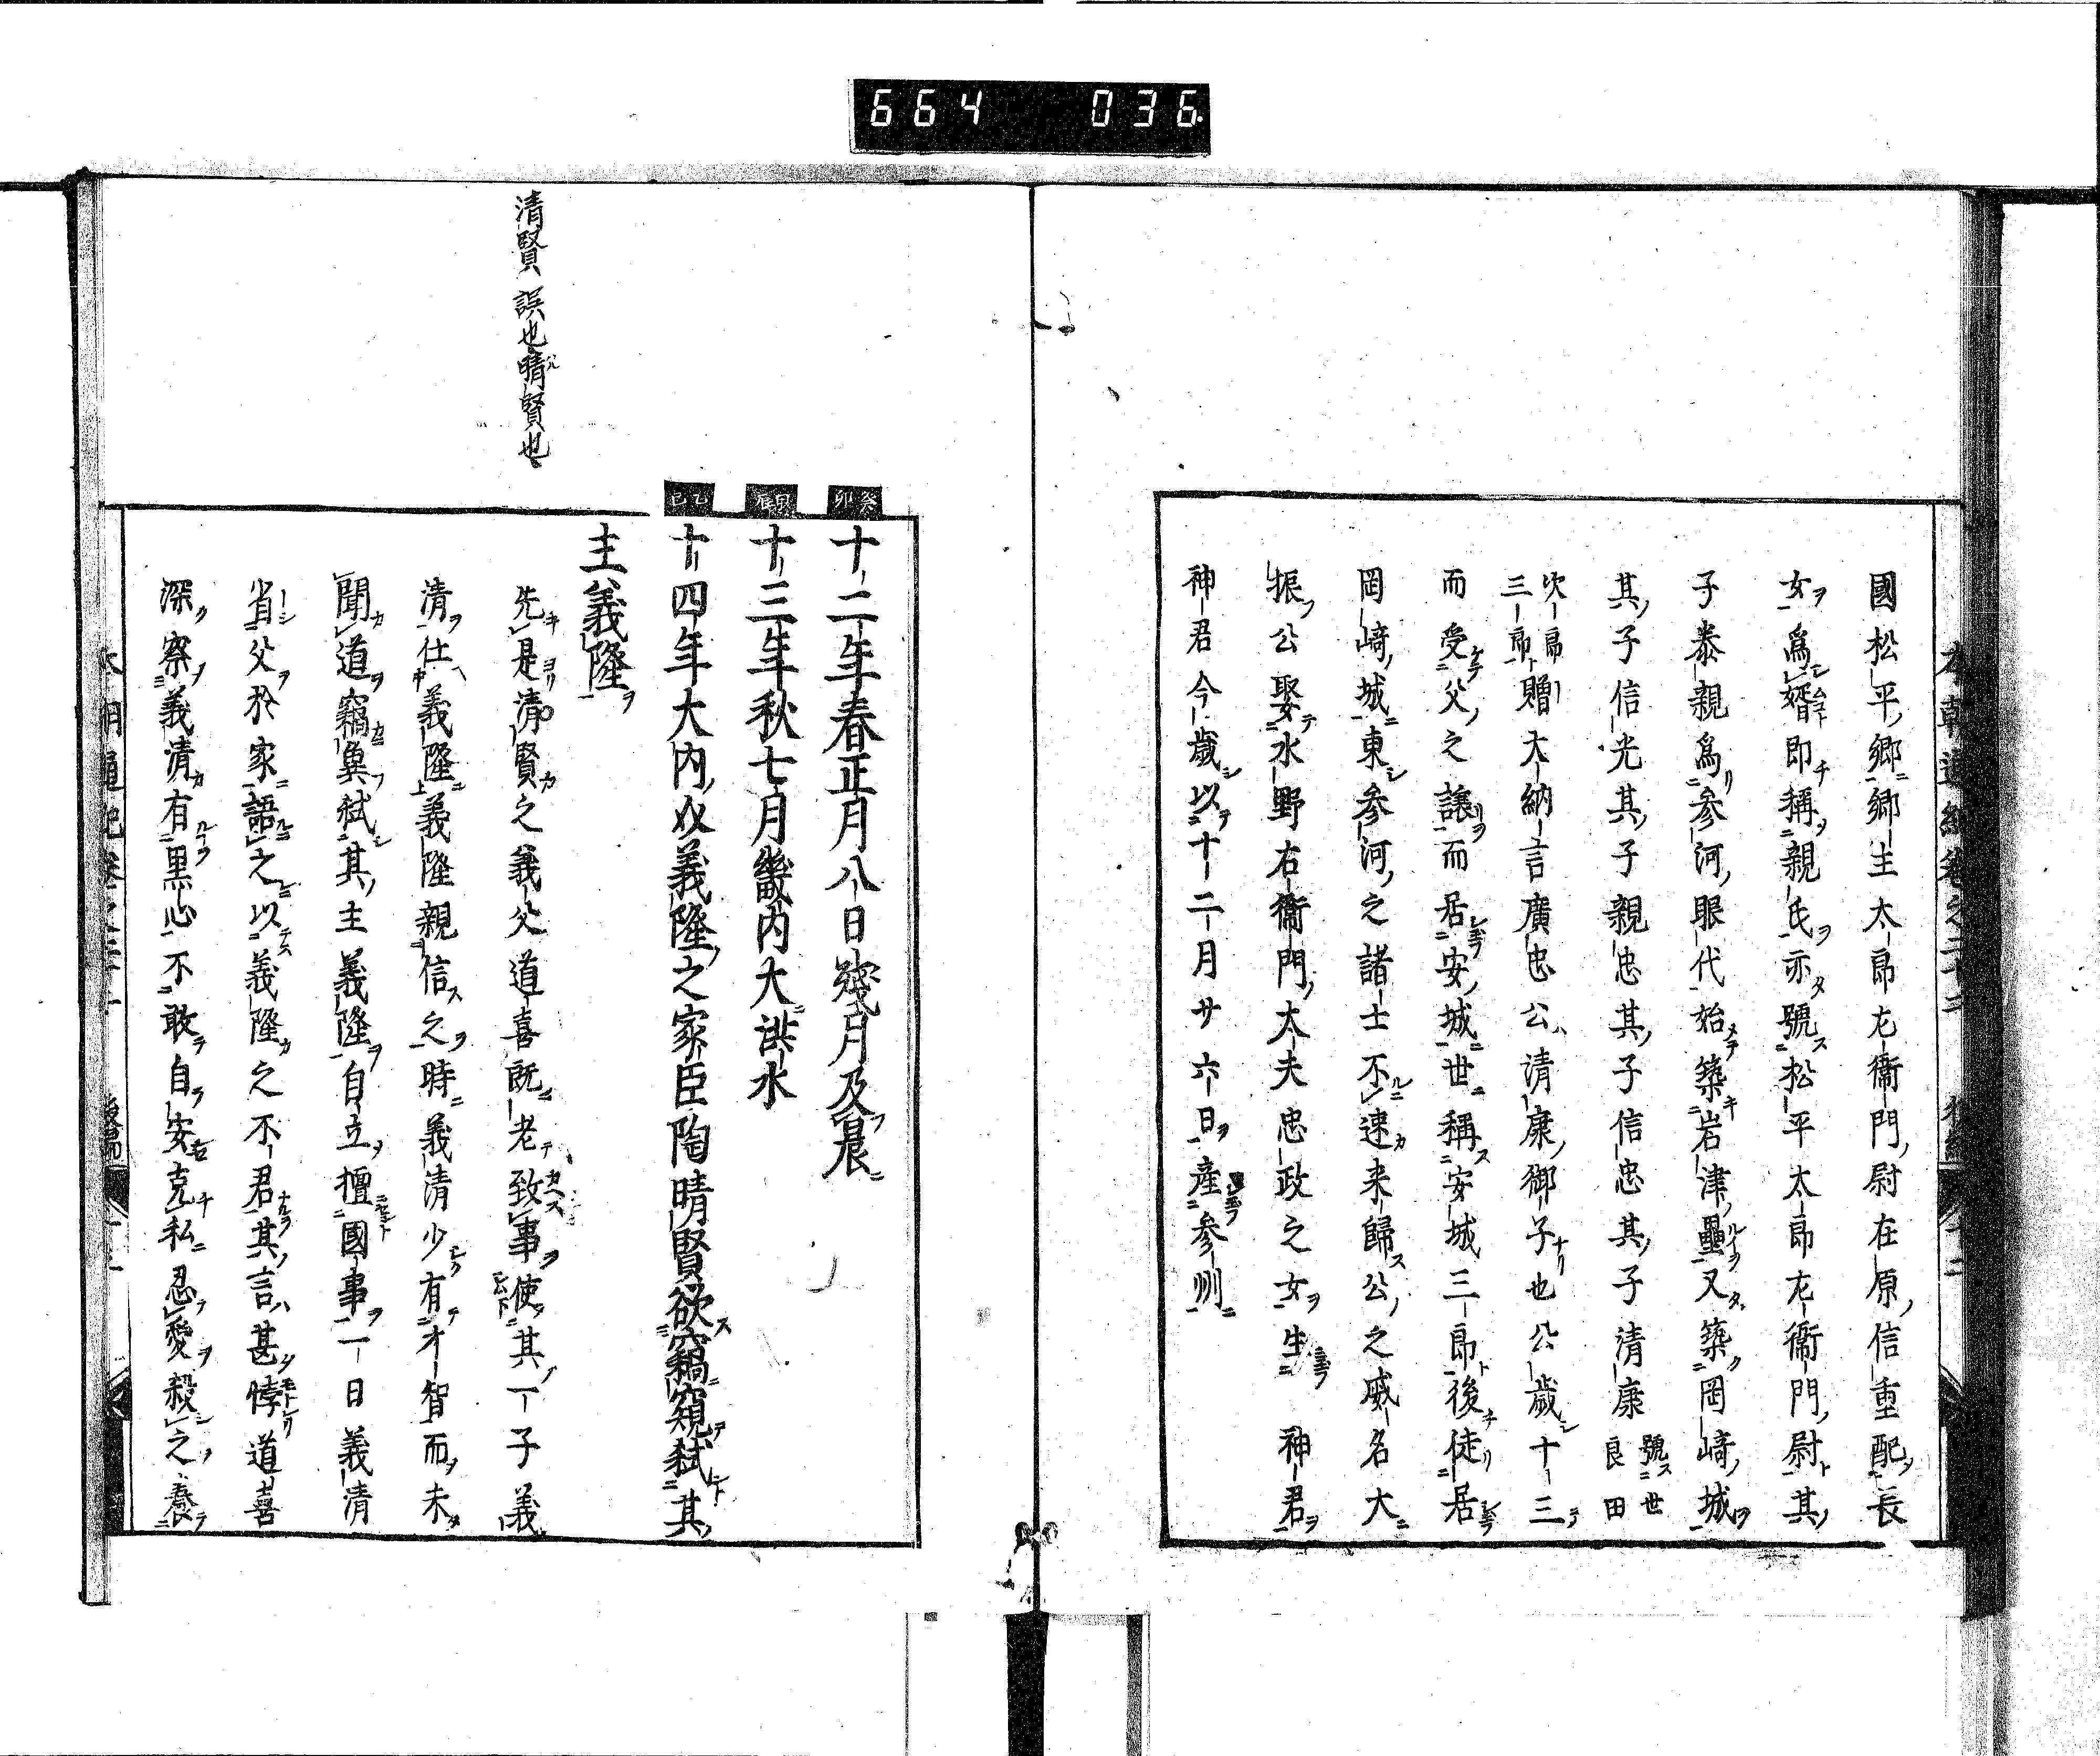 664 036
國松平郷郷主太郎左衞門尉在原信重配長
女爲婿即稱親氏亦號松平太郎左衞門尉其
子泰親爲参河眼代始築岩津壘又築岡﨑城
其子信光其子親忠其子信忠其子清康號世良田
次郎三郎贈大納言廣忠公清康御子也公歳十三
而受父之譲而居安城世稱安城三郎後徒居
岡﨑城東参河之諸士不速来歸公之威名大
振公娶水野右衞門太夫忠政之女生 神君
神君今歳以十二月廿六日産参州
清賢 誤也晴賢也
癸卯
十二年春正月八日殘月及晨
甲辰
十三年秋七月畿内大洪水
乙巳
十四年大内义義隆之家臣陶晴賢欲竊窺弑其
主義隆
先是清賢之義父道喜既老致事使其一子義
清仕義隆義隆親信之時義清少有才智而未
聞道竊冀弑其主義隆自立擅國事一日義清
省父於家語之以義隆之不君其言甚悖道喜
深察義清有黒心不敢自安克私忍愛殺之養
本朝通紀巻之
後編